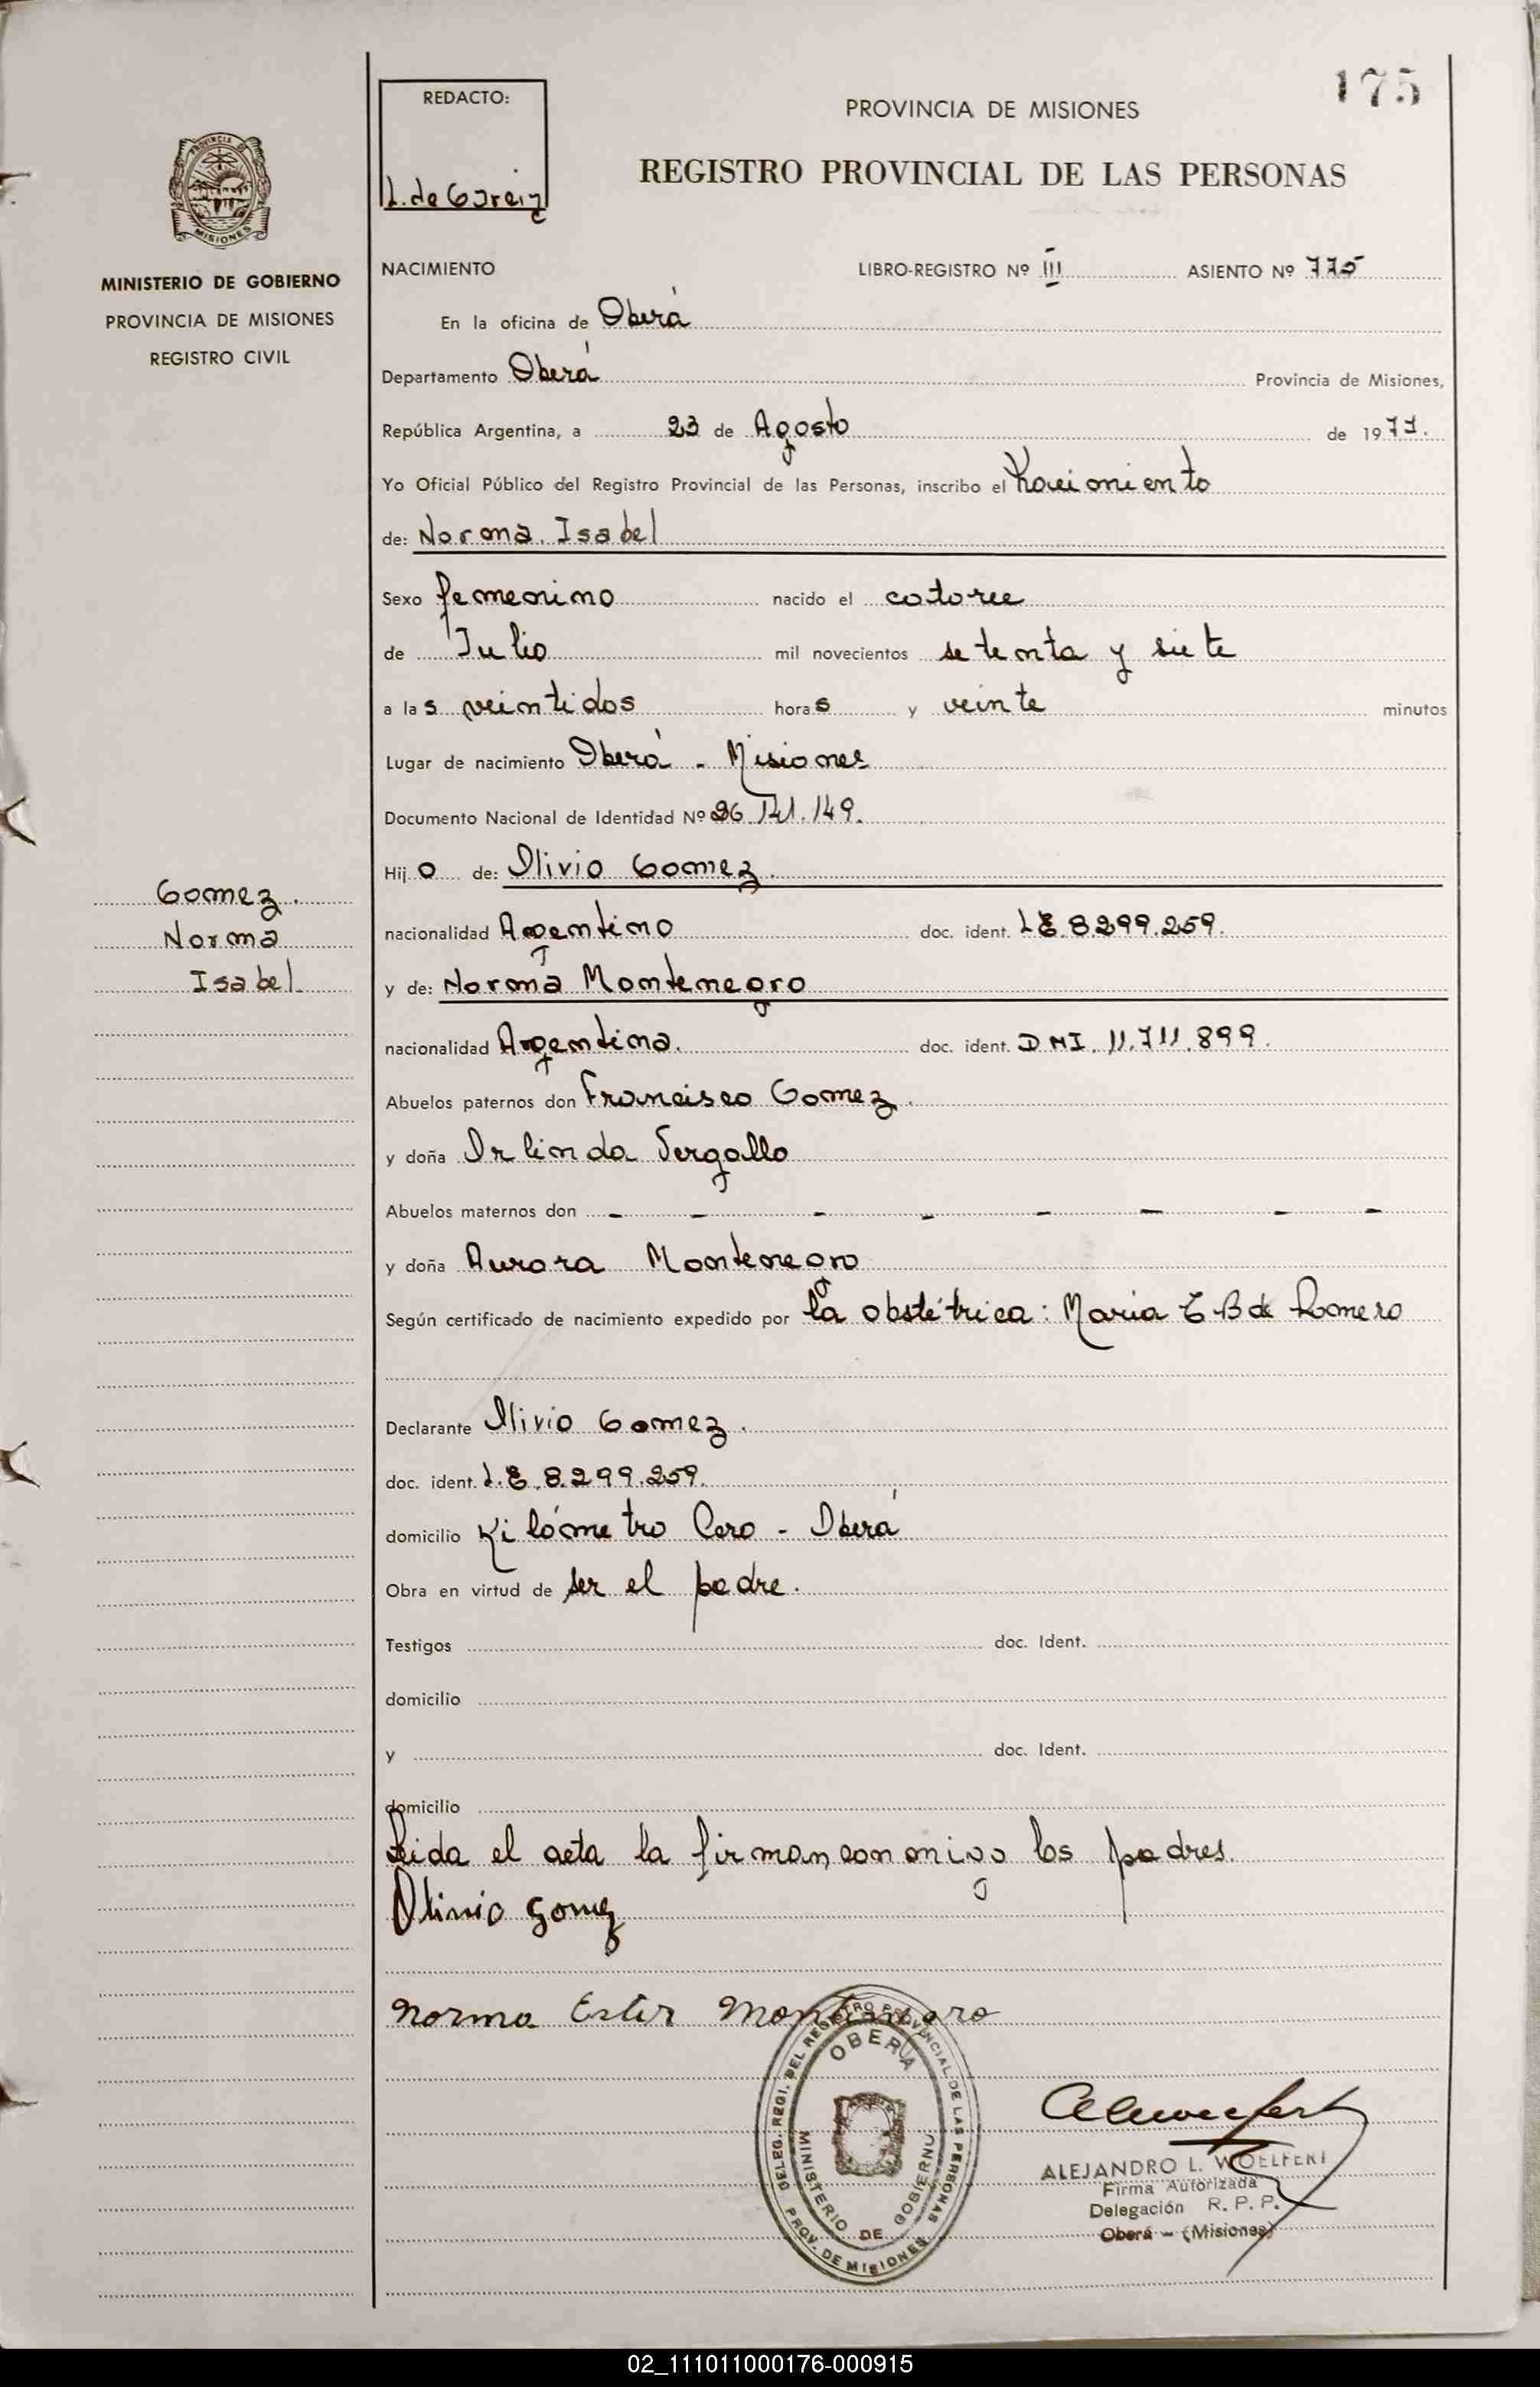 175
REDACTO:
L. de Garcia
PROVINCIA DE MISIONES
REGISTRO PROVINCIAL DE LAS PERSONAS
PROVINCIA DE
MISIONES
MINISTERIO DE GOBIERNO
PROVINCIA DE MISIONES
REGISTRO CIVIL
NACIMIENTO LIBRO-REGISTRO Nº III ASIENTO Nº 775
En la oficina de Oberá
Departamento Oberá Provincia de Misiones,
República Argentina, a 23 de Agosto de 1977.
Yo Oficial Público del Registro Provincial de las Personas, inscribo el Nacimiento
de: Norma Isabel
Sexo femenino nacido el catorce
de Julio mil novecientos setenta y siete
a las veintidos horas y veinte minutos
Lugar de nacimiento Oberá - Misiones
Documento Nacional de Identidad Nº 26.141.149.
Hijo de: Olivio Gomez.
nacionalidad Argentino doc. ident. LE 8.299.259.
y de: Norma Montenegro
nacionalidad Argentina. doc. ident. DNI. 11.711.899.
Gomez.
Norma
Isabel
Abuelos paternos don Francisco Gomez.
y doña Orlinda Vergallo
Abuelos maternos don - - - - - - - -
y doña Aurora Montenegro
Según certificado de nacimiento expedido por la obstétrica: Maria E B de Romero
Declarante Olivio Gomez.
doc. ident. L.E. 8.299.259.
domicilio Kilómetro Cero - Oberá
Obra en virtud de ser el padre.
Testigos doc. Ident.
domicilio
y doc. Ident.
domicilio
Leida el acta la firman conmigo los padres.
Olivio Gomez
Norma Ester Montenegro
DELEG. REGI. DEL REGISTRO PROVINCIAL DE LAS PERSONAS
OBERA
MINISTERIO DE GOBIERNO
PROV. DE MISIONES
ALEJANDRO L. WOELFERT
Firma Autorizada
Delegación R. P. P.
Oberá - (Misiones)
02_111011000176-000915